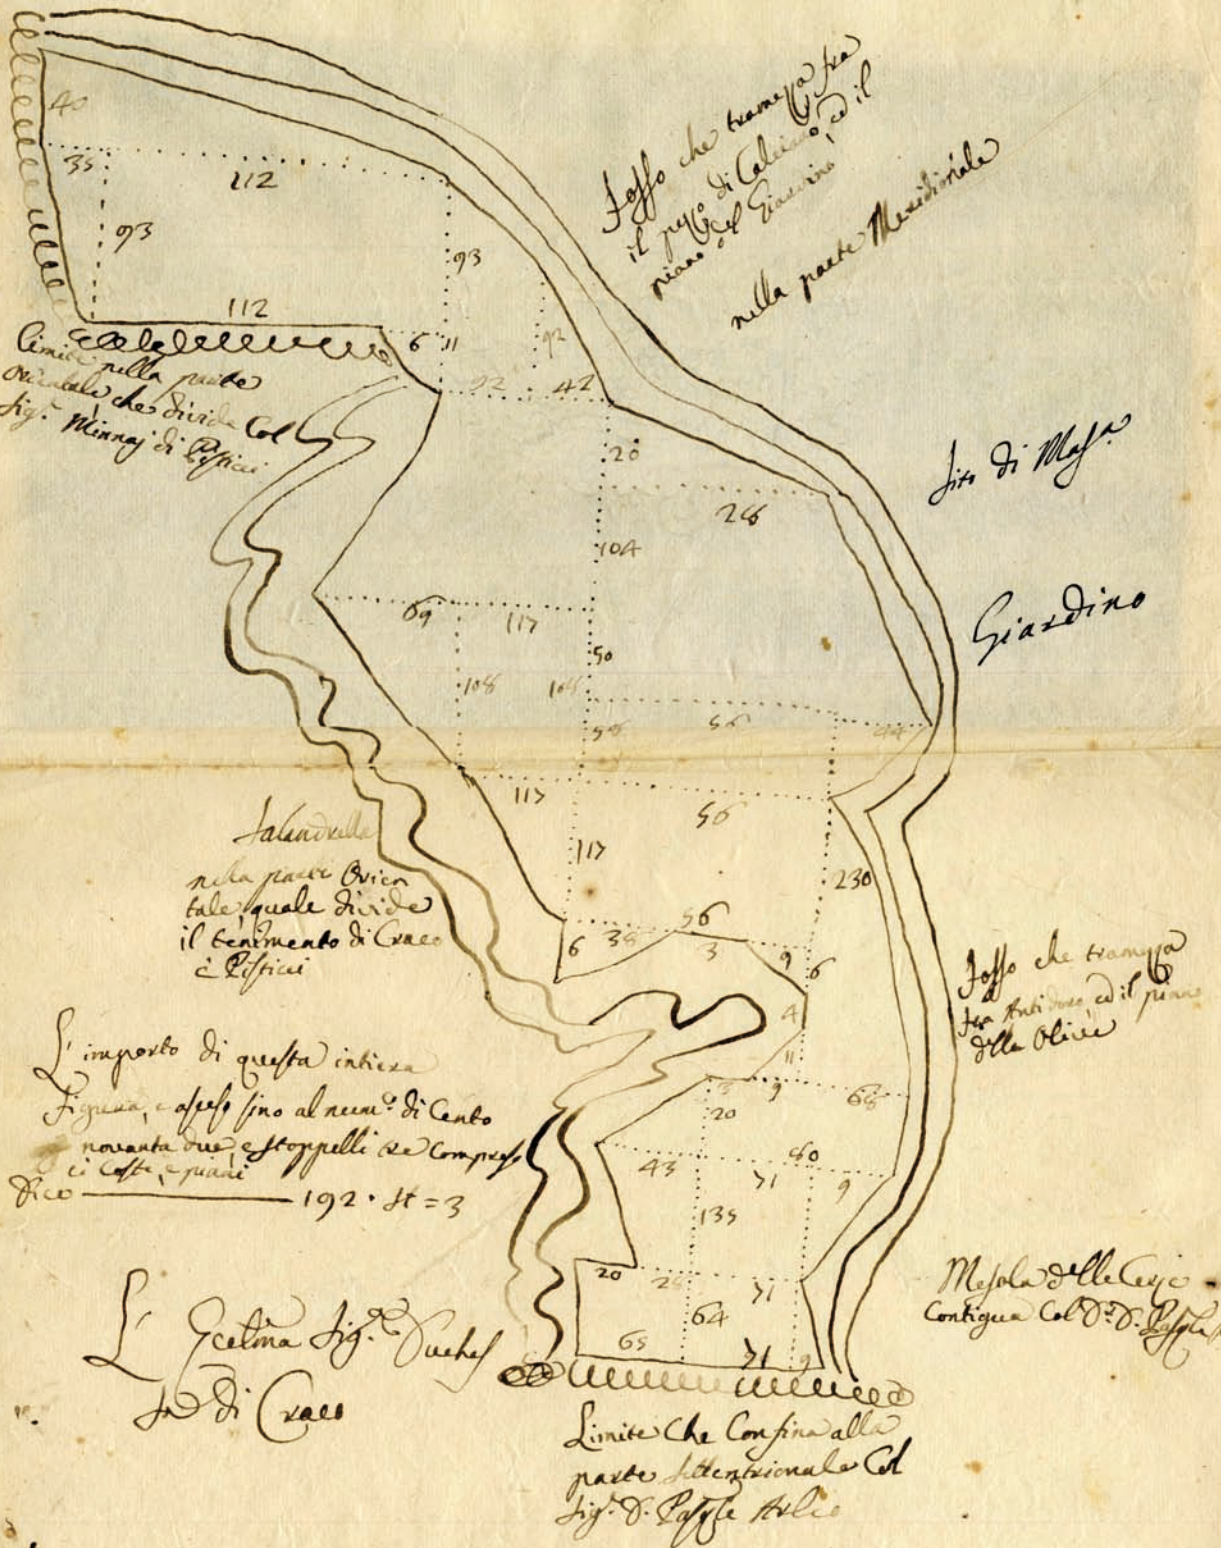 fosso che tramezza fra
il pezzo di Calciano, ed il
piano del Giardino
nella parte Meridionale
40
35
112
93
93
112
6
11
92
92
42
Limite nella parte
Orientale che divide Col
Sig.r Minnaj di Pisticci
20
28
104
Sito di Mass.a
Giardino
69
117
50
108
108
58
56
44
117
56
117
230
Salandrella
nella parte Orien
tale, quale divide
il tenimento di Craco
è Pisticci
6
38
56
3
9
6
4
11
Fosso che tramezza
fra ed il piano
delle Olive
L' importo di questa intiera
Figura, è asceso sino al num.o di Cento
novanta due, e stoppelli tre compresi
ci Coste, e piani
Dico 192. st = 3
3
9
68
20
43
80
71
9
135
20
28
71
64
65
71
9
Mesola delle Cerze
Contigua Col D.r D. Pasq.le
L' Eccell.ma Sig.ra Duches
sa di Craco
Limite Che Confina alla
parte Settentrionale Col
Sig.r D. Pasq.le